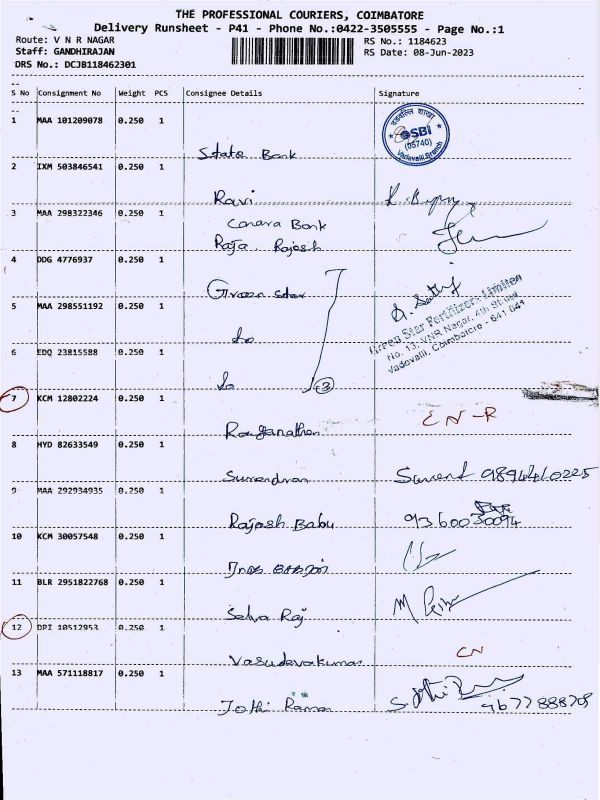 THE PROFESSIONAL COURIERS, COIMBATORE
Delivery Runsheet - P41 - Phone No.:0422-3505555 - Page No.:1
Route: V N R NAGAR RS No.: 1184623
Staff: GANDHIRAJAN RS Date: 08-Jun-2023
DRS No.: DCJB118462301
S No Consignment No Weight PCS Consignee Details Signature
1 MAA 101209078 0.250 1
State Bank
SBI
(05740)
Vadavalli Branch
2 IXM 503846541 0.250 1
Ravi
3 MAA 298322346 0.250 1
Canara Bank
Raja Rajesh
4 DDG 4776937 0.250 1
Green Star
5 MAA 298551192 0.250 1
do
Green Star Fertilizers Limited
No. 13, VNR Nagar, 4th Street
Vadavalli, Coimbatore - 641 041
6 EDQ 23815588 0.250 1
do 3
7 KCM 12802224 0.250 1
Ranganathan CN-R
8 HYD 82633549 0.250 1
Surendran 9894410225
9 MAA 292934935 0.250 1
Rajesh Babu 9360030094
10 KCM 30057548 0.250 1
11 BLR 2951822768 0.250 1
Selva Raj
12 DPI 10512953 0.250 1
Vasudevakumar CN
13 MAA 571118817 0.250 1
Jothi Raman 9677888708